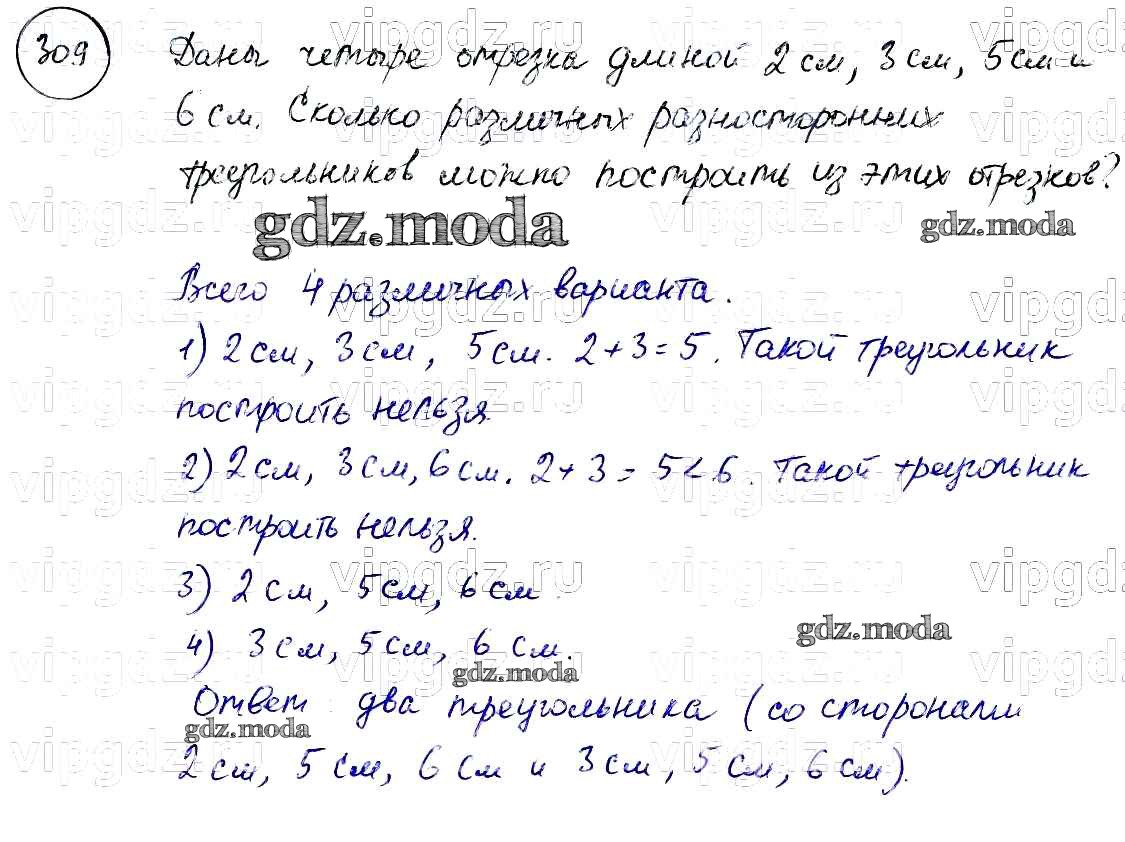 309
Даны четыре отрезка длиной 2 см, 3 см, 5 см и
6 см. Сколько различных разносторонних
треугольников можно построить из этих отрезков?
gdz.moda gdz.moda
Всего 4 различных варианта.
1) 2 см, 3 см, 5 см. 2+3=5. Такой треугольник
построить нельзя.
2) 2 см, 3 см, 6 см. 2+3=5<6. Такой треугольник
построить нельзя.
3) 2 см, 5 см, 6 см.
gdz.moda
4) 3 см, 5 см, 6 см.
gdz.moda
Ответ: два треугольника (со сторонами
gdz.moda
2 см, 5 см, 6 см и 3 см, 5 см, 6 см).
vipgdz.ru